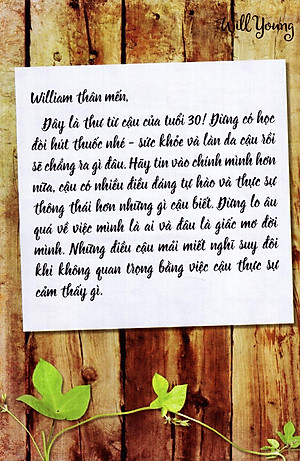 Will Young
William thân mến,
Đây là thư từ cậu của tuổi 30! Đừng có học
đòi hút thuốc nhé - sức khỏe và làn da cậu rồi
sẽ chẳng ra gì đâu. Hãy tin vào chính mình hơn
nữa, cậu có nhiều điều đáng tự hào và thực sự
thông thái hơn những gì cậu biết. Đừng lo âu
quá về việc mình là ai và đâu là giấc mơ đời
mình. Những điều cậu mải miết nghĩ suy đôi
khi không quan trọng bằng việc cậu thực sự
cảm thấy gì.